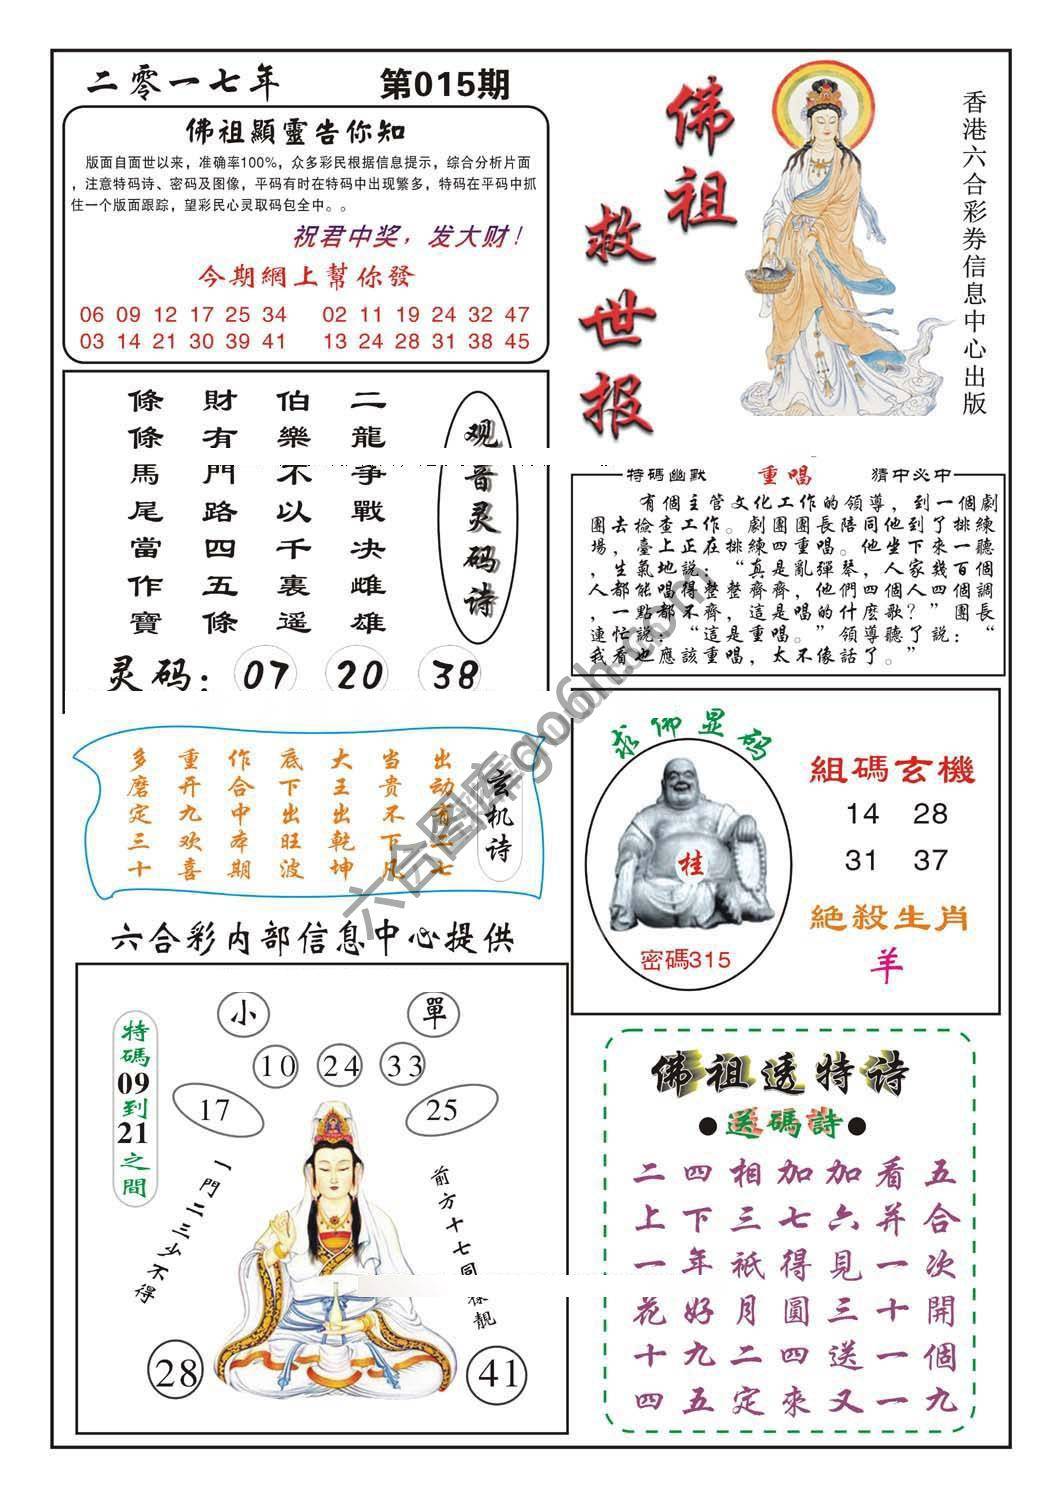 二零一七年
第015期
佛祖顯靈告你知
版面自面世以来，准确率100%，众多彩民根据信息提示，综合分析片面
，注意特码诗、密码及图像，平码有时在特码中出现繁多，特码在平码中抓
住一个版面跟踪，望彩民心灵取码包全中。。
祝君中奖，发大财！
今期網上幫你發
06 09 12 17 25 34 02 11 19 24 32 47
03 14 21 30 39 41 13 24 28 31 38 45
佛祖
救世报
香港六合彩券信息中心出版
观音灵码诗
二龍争戰决雌雄
伯樂不以千裏遥
財有門路四五條
條條馬尾當作寶
灵码：07 20 38
特碼幽默 重唱 猜中必中
有個主管文化工作的領導，到一個劇
團去檢查工作。劇團團長陪同他到了排練
場，臺上正在排練四重唱。他坐下來一聽
，生氣地説：“真是亂彈琴，人家幾百個
人都能唱得整整齊齊，他們四個人四個調
，一點都不齊，這是唱的什麽歌？”團長
連忙説：“這是重唱。”領導聽了説：“
我看也應該重唱，太不像話了。”
玄机诗
出动有二七
当贵不下凡
大王出乾坤
底下出旺波
作合中本期
重开九欢喜
多磨定三十
求佛显码
桂
密碼315
組碼玄機
14 28
31 37
絶殺生肖
羊
六合彩内部信息中心提供
特碼09到21之間
小 單
10 24 33
17 25
一門二三少不得
前方十七同様靚
28 41
佛祖透特诗
●送碼詩●
五合次開個九
看并一十一一
加六見三送又
加七得圓四來
相三祇月二定
四下年好九五
二上一花十四
六合图库go6h.com